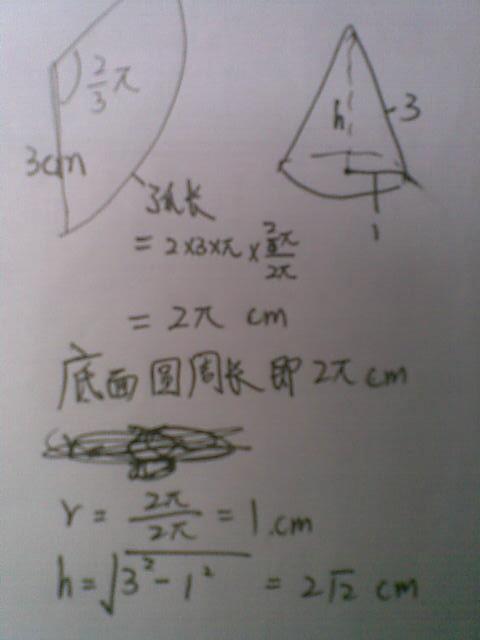 2/3 π
3cm
h
3
1
弧长
= 2×3×π × (2/3 π)/(2π)
= 2π cm
底面圆周长即 2π cm
r = 2π/2π = 1.cm
h = √(3²-1²) = 2√2 cm